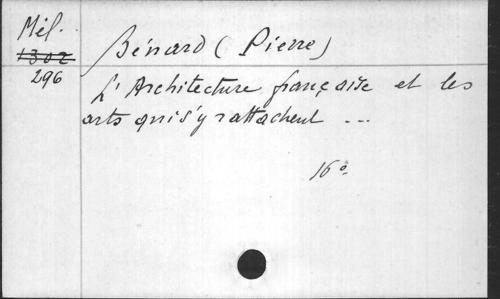 Mél.
1302
296
Bénard (Pierre)
L'Architecture française et les
arts qui s'y rattachent ...
16°